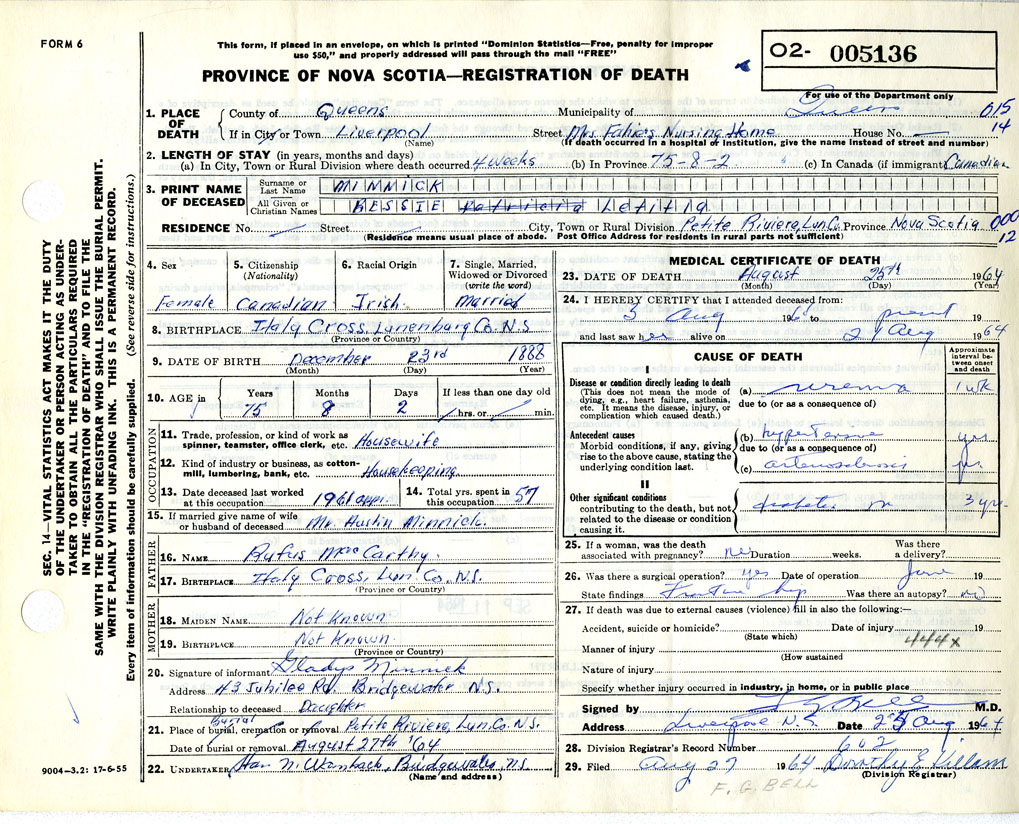 FORM 6
This form, if placed in an envelope, on which is printed "Dominion Statistics—Free, penalty for improper
use $50," and properly addressed will pass through the mail "FREE"
PROVINCE OF NOVA SCOTIA—REGISTRATION OF DEATH
O2- 005136
For use of the Department only
015
14
1. PLACE OF DEATH
County of Queens Municipality of
If in City or Town Liverpool Street Mrs. Fahie's Nursing Home House No. —
(Name) (If death occurred in a hospital or institution, give the name instead of street and number)
2. LENGTH OF STAY (in years, months and days)
(a) In City, Town or Rural Division where death occurred 4 weeks (b) In Province 75-8-2 (c) In Canada (if immigrant) Canadian
3. PRINT NAME OF DECEASED
Surname or Last Name MINNICK
All Given or Christian Names BESSIE Patricia Letitia
RESIDENCE No. Street City, Town or Rural Division Petite Riviere, Lun. Co. Province Nova Scotia
000
12
(Residence means usual place of abode. Post Office Address for residents in rural parts not sufficient)
4. Sex
Female
5. Citizenship (Nationality)
Canadian
6. Racial Origin
Irish
7. Single, Married, Widowed or Divorced (write the word)
Married
8. BIRTHPLACE Italy Cross, Lunenburg Co. N.S
(Province or Country)
9. DATE OF BIRTH December 23rd 1888
(Month) (Day) (Year)
10. AGE in
Years Months Days If less than one day old
75 8 2 hrs. or min.
OCCUPATION
11. Trade, profession, or kind of work as spinner, teamster, office clerk, etc. Housewife
12. Kind of industry or business, as cotton-mill, lumbering, bank, etc. Housekeeping
13. Date deceased last worked at this occupation 1961 appr.
14. Total yrs. spent in this occupation 57
15. If married give name of wife or husband of deceased Mr. Minnick.
FATHER
16. NAME Rufus McCarthy.
17. BIRTHPLACE Italy Cross, Lun. Co. N.S.
(Province or Country)
MOTHER
18. MAIDEN NAME Not Known
19. BIRTHPLACE Not Known
(Province or Country)
20. Signature of informant Gladys Minnick
Address 43 Jubilee Rd. Bridgewater N.S.
Relationship to deceased Daughter
Burial
21. Place of burial, cremation or removal Petite Riviere, Lun. Co. N.S.
Date of burial or removal August 27th '64
22. UNDERTAKER Bridgewater, N.S
(Name and address)
MEDICAL CERTIFICATE OF DEATH
23. DATE OF DEATH August 25th 1964
(Month) (Day) (Year)
24. I HEREBY CERTIFY that I attended deceased from:
5 Aug 196 to present 19
and last saw her alive on Aug 1964
CAUSE OF DEATH
Approximate interval between onset and death
I
Disease or condition directly leading to death
(This does not mean the mode of dying, e.g., heart failure, asthenia, etc. It means the disease, injury, or complication which caused death.)
(a) uremia 1 wk
due to (or as a consequence of)
Antecedent causes
Morbid conditions, if any, giving rise to the above cause, stating the underlying condition last.
(b) hypertension yrs.
due to (or as a consequence of)
(c) arteriosclerosis yrs.
II
Other significant conditions
contributing to the death, but not related to the disease or condition causing it.
diabetes 3 yrs.
25. If a woman, was the death associated with pregnancy? no Duration weeks. Was there a delivery?
26. Was there a surgical operation? yes Date of operation June 19
State findings Fracture hip Was there an autopsy? no
27. If death was due to external causes (violence) fill in also the following:—
Accident, suicide or homicide? Date of injury 19
(State which)
444x
Manner of injury
(How sustained
Nature of injury
Specify whether injury occurred in industry, in home, or in public place
Signed by F G Bell M.D.
Address Liverpool N.S. Date Aug 1964
28. Division Registrar's Record Number 602
29. Filed Aug 27 1964 Dorothy E Killam
(Division Registrar)
F. G. BELL
SEC. 14—VITAL STATISTICS ACT MAKES IT THE DUTY
OF THE UNDERTAKER OR PERSON ACTING AS UNDER-
TAKER TO OBTAIN ALL THE PARTICULARS REQUIRED
IN THE "REGISTRATION OF DEATH" AND TO FILE THE
SAME WITH THE DIVISION REGISTRAR WHO SHALL ISSUE THE BURIAL PERMIT.
WRITE PLAINLY WITH UNFADING INK. THIS IS A PERMANENT RECORD.
Every item of information should be carefully supplied. (See reverse side for instructions.)
9004—3.2: 17-6-55